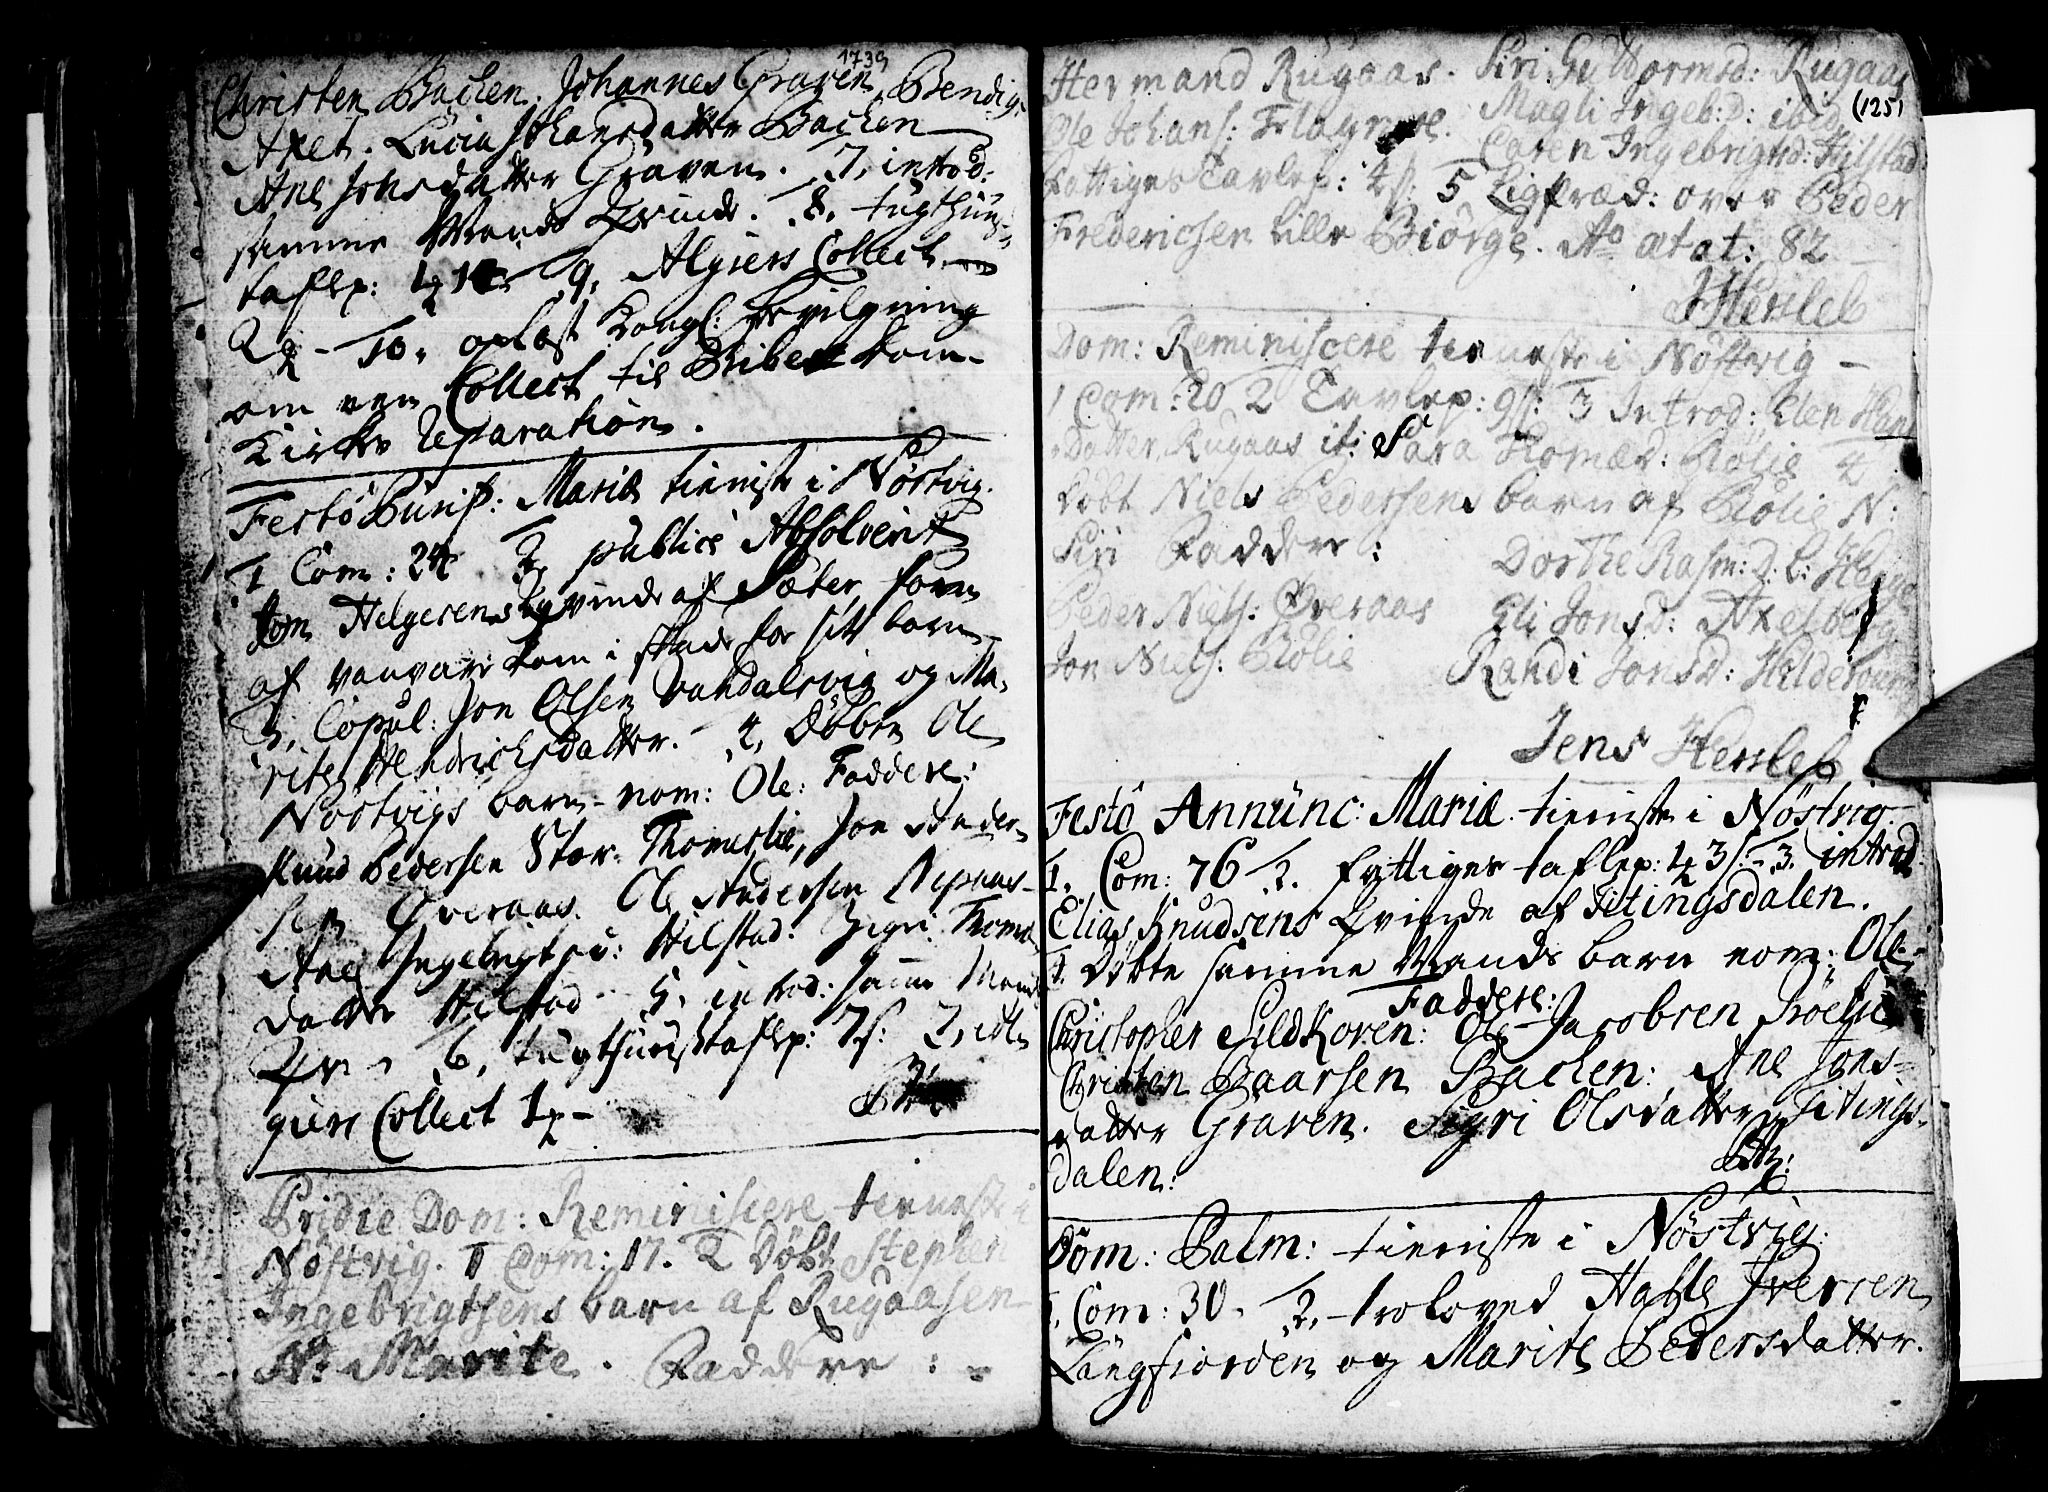 1739
Christen Bachen. Johannes Graven, Bendigt
Axel. Lucia Johansdatter Bachen
Ane Jonsdatter Graven. 7, introd:
samme Mands Qvinde. 8, tugthuus
taflep: 9, Algiers Collect
10, oplæst Kongl: bevilgning
om een Collect til Ribe Dom-
Kirkes Reparation.
Festo Purif: Mariæ tieniste i Nöstvig.
1 Com: 24 2, publice Absolverit
Jon Helgesens qvinde af Sæter, som
af vanvare kom i skade for sitt barn
3, Copul: Jon Olsen Vandalsvig og Ma-
rite Hendrichsdatter. 4, Döbte Ole
Nöstvigs barn nom: Ole: Faddere:
Knud Pedersen Stor- Thomeslie, Jon Ander-
sen Øveraas. Ole Andersen Nepaas-
Ane Ingebrigtsd: Hilstad. Sigri Thomes
datter Hilstad 5, introd: samme Mands
Qv: 6, tugthuustaflep: 7 s: 7, Al-
giers Collect
Pridie Dom: Reminiscere tieneste i
Nöstvig. 1 Com: 17. 2 Döbt Stephen
Ingebrigtsens barn af Rugaasen
N: Marite. Faddere:
(125)
Hermand Rugaas. Siri Guttormsd: Rugaas
Ole Johans: Magli Ingeb: D: ibid
Caren Ingebrigtsd: Hilstad
Fattiges Tavlep: 5 Ligpræd: over Peder
Fredericsen lille Biörge. Ao ætat: 82
J Hersleb
Dom: Reminiscere tieneste i Nöstvig
1 Com: 20 2 Tavlep: 9 s: 3 Introd: Elen Hans
Datter Rugaas it: Sara Thomæd: Rölie 4
Döbt Niels Pedersens barn af Rölie N:
Siri Faddere:
Dorthe Rasm: D: l: Hegge
Peder Niels: Øveraas Eli Jonsd: Axelberg
Jon Niels: Rölie Randi Jonsd: Hilde
Jens Hersleb
Festo Annunc: Mariæ tieniste i Nöstvig.
1, Com: 76 2. fattiges taflep: 3. introd:
Elias Knudsens Qvinde af Sitingsdalen.
4. Döbte samme Mands barn nom: Ole.
Faddere:
Christopher Sildkoren: Ole Jacobsen Röelie
Christen Baarsen Bachen: Ane Jons-
datter Graven. Sigri Olsdatter Sitings-
dalen:
Dom: Palm: tieniste i Nöstvig:
1, Com: 30. 2, troloved Halfle Iversen
Langfiorden og Marite Pedersdatter.